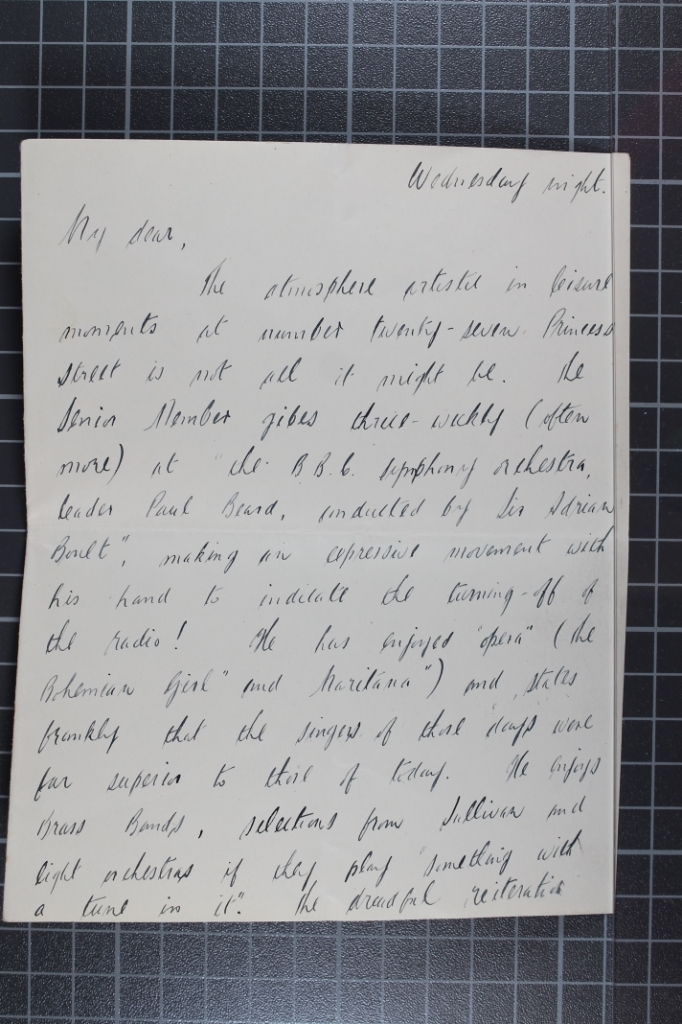 Wednesday night.
My dear,
The atmosphere artistic in leisure
moments at number twenty-seven Princess
Street is not all it might be. The
Senior Member gibes three-weekly (often
more) at "the B.B.C. symphony orchestra,
leader Paul Beard, conducted by Sir Adrian
Boult", making an expressive movement with
his hand to indicate the turning-off of
the radio! He has enjoyed "opera" (the
Bohemian Girl" and Maritana") and states
frankly that the singers of those days were
far superior to those of today. He enjoys
Brass Bands, selections from Sullivan and
light orchestras if they play "something with
a tune in it". The dreadful reiteration